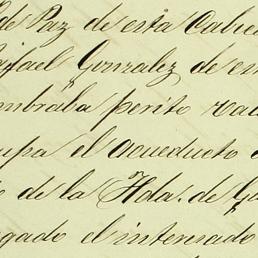 de Paz de esta Cabe
Rafael Gonzalez de en
ombraba perito va
upa el acueducto
de la Hda. de G
gado el interesado